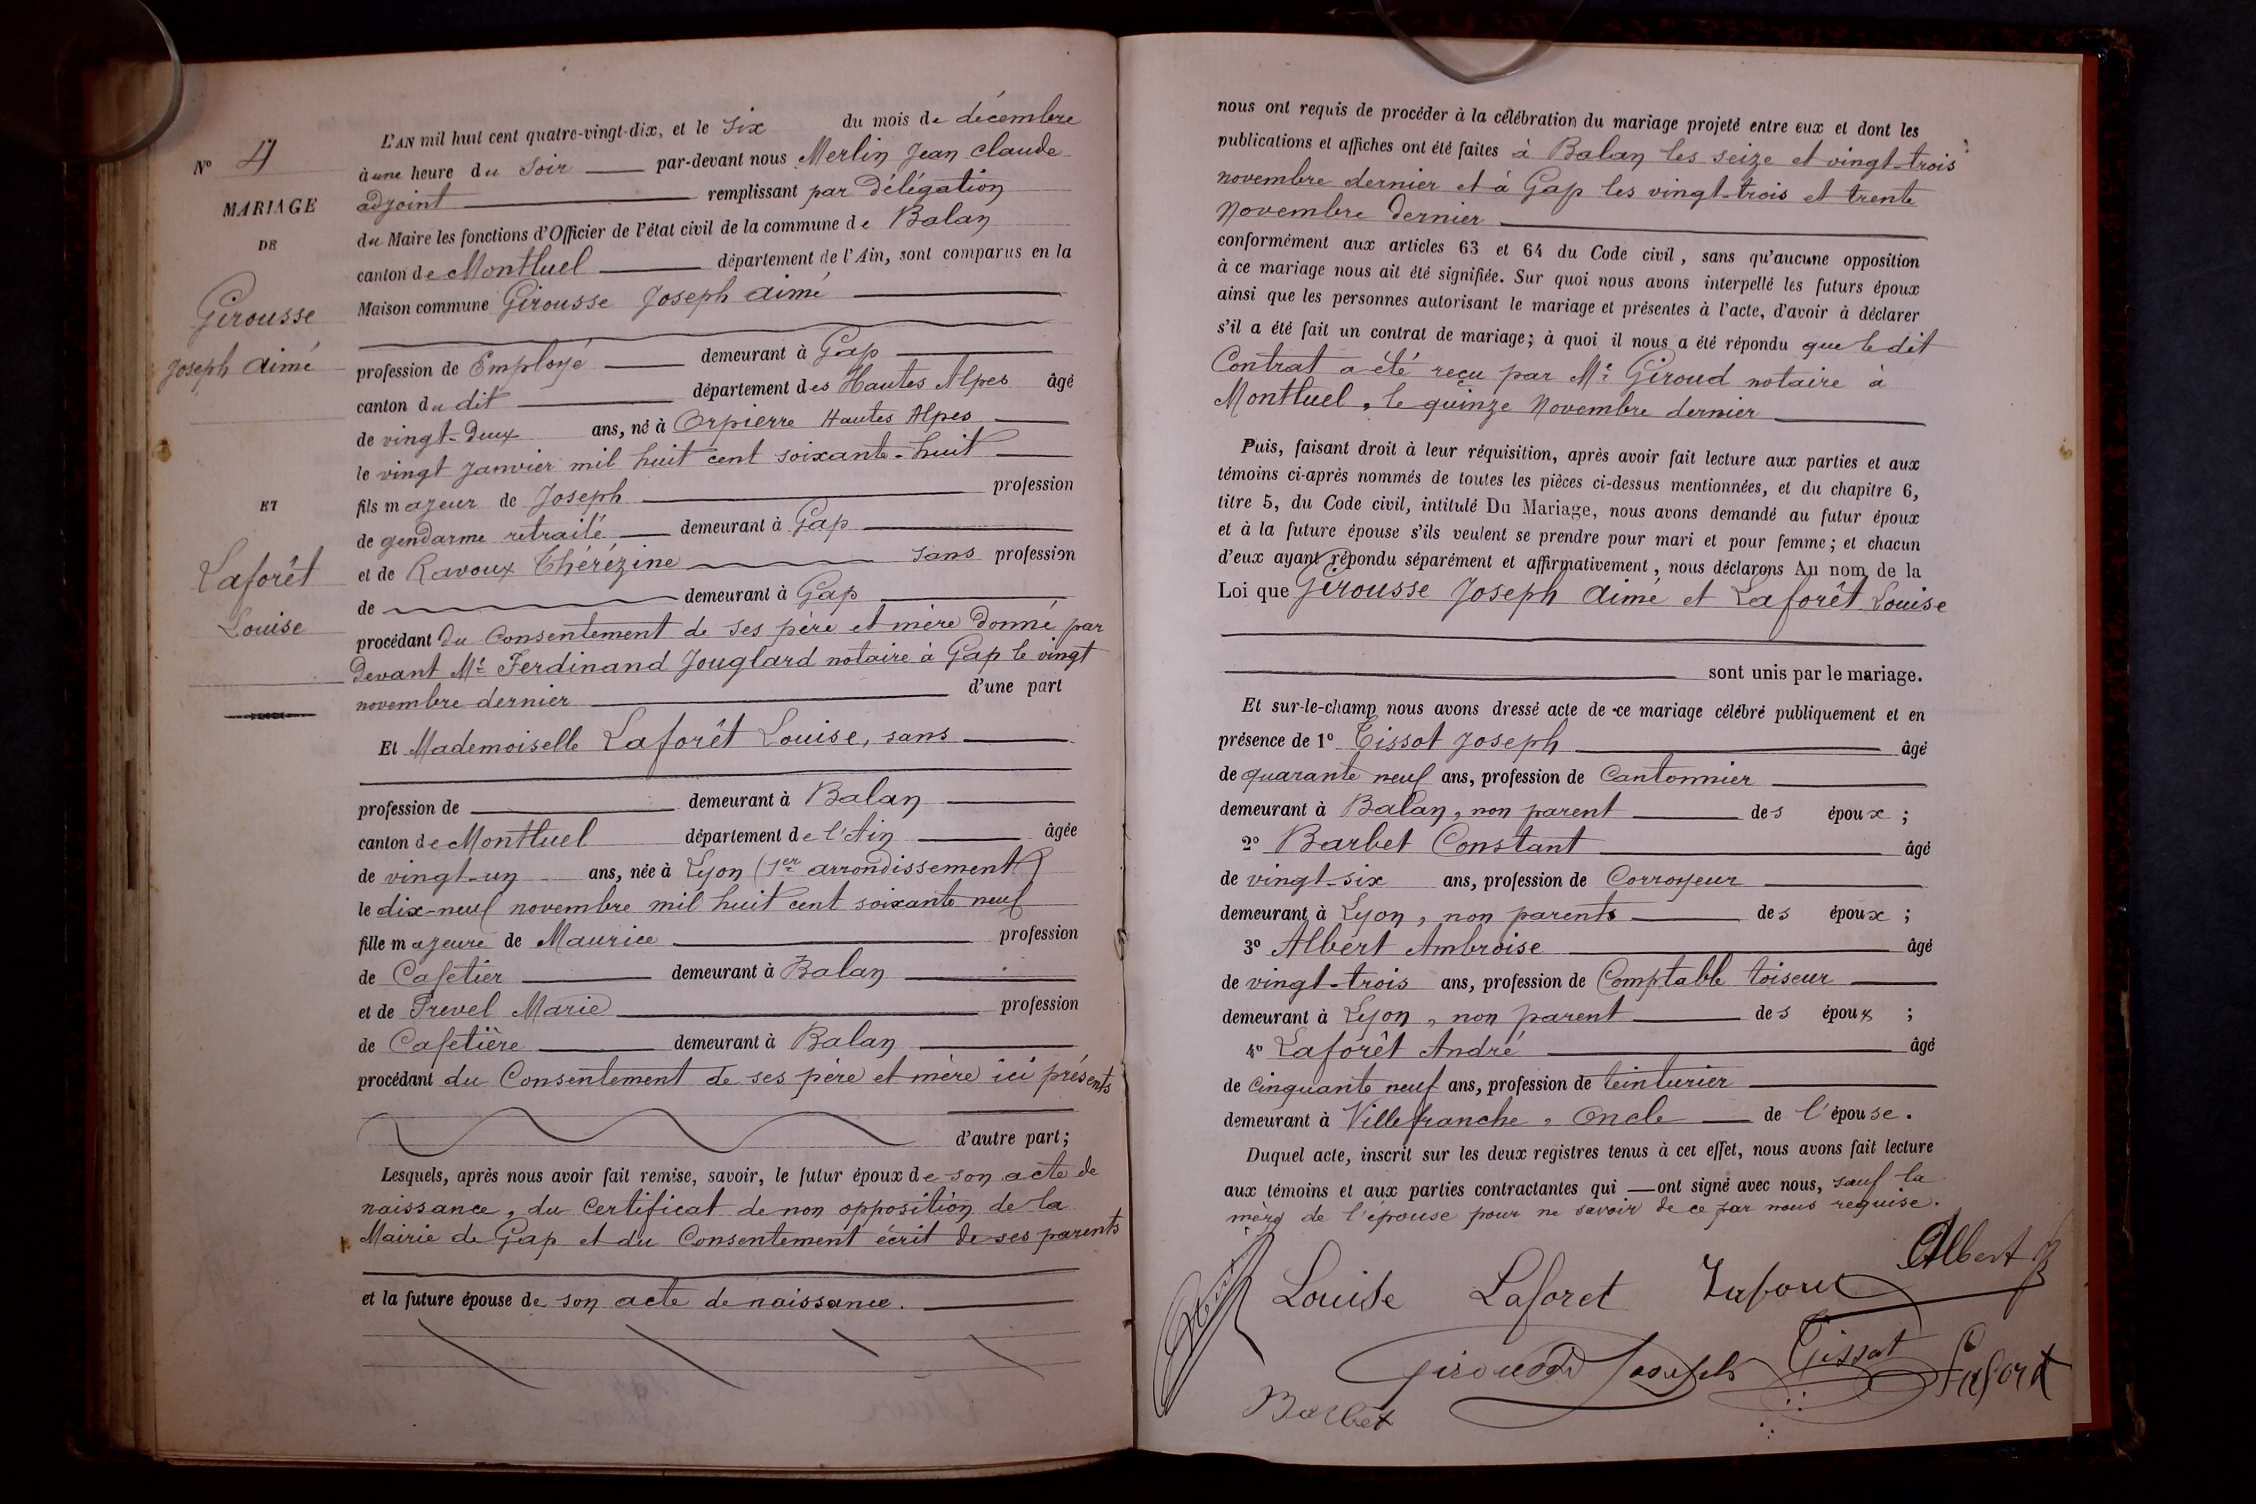 N° 4
MARIAGE
DE
Girousse
Joseph Aimé
ET
Laforêt
Louise
L'AN mil huit cent quatre-vingt-dix, et le six du mois de décembre
à une heure du soir par-devant nous Merlin Jean Claude
adjoint remplissant par Délégation
du Maire les fonctions d'Officier de l'état civil de la commune de Balan
canton de Montluel département de l'Ain, sont comparus en la
Maison commune Girousse Joseph Aimé
profession de Employé demeurant à Gap
canton du dit département des Hautes Alpes âgé
de vingt-deux ans, né à Orpierre Hautes Alpes
le vingt Janvier mil huit cent soixante-huit
fils majeur de Joseph profession
de gendarme retraité demeurant à Gap
et de Ravoux Thérézine sans profession
de demeurant à Gap
procédant du Consentement de ses père et mère Donné par
Devant Me Ferdinand Jouglard notaire à Gap le vingt
novembre dernier d'une part
Et Mademoiselle Laforêt Louise, sans
profession de demeurant à Balan
canton de Montluel département de l'Ain âgée
de vingt-un ans, née à Lyon (1er arrondissement)
le dix-neuf novembre mil huit cent soixante neuf
fille majeure de Maurice profession
de Cafetier demeurant à Balan
et de Trevel Marie profession
de Cafetière demeurant à Balan
procédant du Consentement de ses père et mère ici présents
d'autre part;
Lesquels, après nous avoir fait remise, savoir, le futur époux de son acte de
naissance, du certificat de non opposition de la
Mairie de Gap et du Consentement écrit de ses parents
et la future épouse de son acte de naissance.
nous ont requis de procéder à la célébration du mariage projeté entre eux et dont les
publications et affiches ont été faites à Balan les seize et vingt-trois
novembre dernier et à Gap les vingt-trois et trente
Novembre dernier
conformément aux articles 63 et 64 du Code civil, sans qu'aucune opposition
à ce mariage nous ait été signifiée. Sur quoi nous avons interpellé les futurs époux
ainsi que les personnes autorisant le mariage et présentes à l'acte, d'avoir à déclarer
s'il a été fait un contrat de mariage; à quoi il nous a été répondu que le dit
Contrat a été reçu par Me Giroud notaire à
Montluel, le quinze Novembre dernier
Puis, faisant droit à leur réquisition, après avoir fait lecture aux parties et aux
témoins ci-après nommés de toutes les pièces ci-dessus mentionnées, et du chapitre 6,
titre 5, du Code civil, intitulé Du Mariage, nous avons demandé au futur époux
et à la future épouse s'ils veulent se prendre pour mari et pour femme; et chacun
d'eux ayant répondu séparément et affirmativement, nous déclarons Au nom de la
Loi que Girousse Joseph Aimé et Laforêt Louise
sont unis par le mariage.
Et sur-le-champ nous avons dressé acte de ce mariage célébré publiquement et en
présence de 1° Tissot Joseph âgé
de quarante neuf ans, profession de Cantonnier
demeurant à Balan, non parent des époux;
2° Barbet Constant âgé
de vingt-six ans, profession de Corroyeur
demeurant à Lyon, non parents des époux;
3° Albert Ambroise âgé
de vingt-trois ans, profession de Comptable toiseur
demeurant à Lyon, non parent des époux;
4° Laforêt André âgé
de cinquante neuf ans, profession de teinturier
demeurant à Villefranche, Oncle de l'épouse.
Duquel acte, inscrit sur les deux registres tenus à cet effet, nous avons fait lecture
aux témoins et aux parties contractantes qui ont signé avec nous, sauf la
mère de l'épouse pour ne savoir de ce par nous requise.
Albert
Louise Laforet
Tissot
Barbet